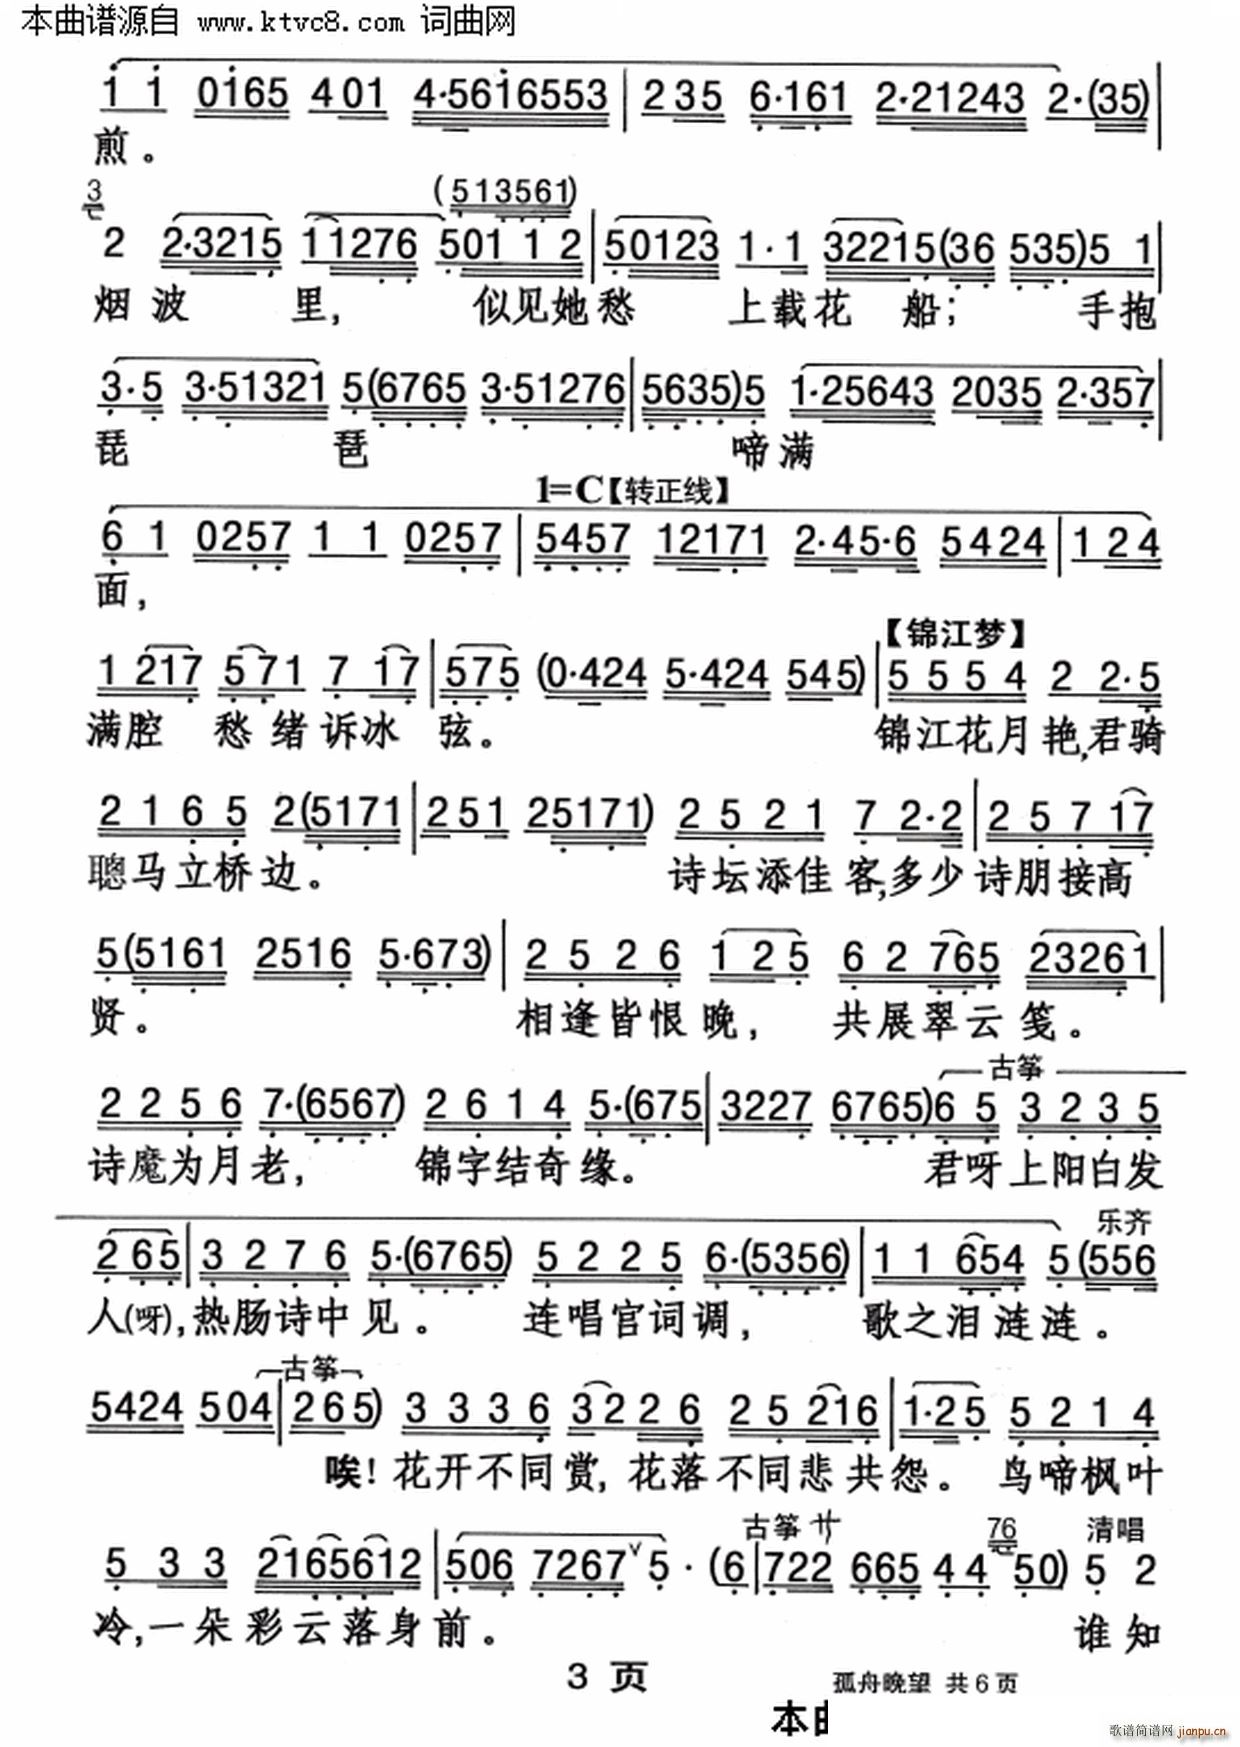 本曲谱源自 www.ktvc8.com 词曲网
1 1 0165 401 4·56i6553 | 235 6·161 2·21243 2·(35) |
煎。
3
(513561)
2 2·3215 11276 501 1 2 | 50123 1·1 32215(36 535)5 1 |
烟波 里, 似见她愁 上载花 船; 手抱
3·5 3·51321 5(6765 3·51276 | 5635)5 1·25643 2035 2·357 |
琵 琶 啼满
1=C【转正线】
6 1 0257 1 1 0257 | 5457 12171 2·45·6 5424 | 1 2 4
面,
【锦江梦】
1 217 571 7 17 | 575 (0·424 5·424 545) | 5 5 5 4 2 2·5
满腔 愁绪诉冰 弦。 锦江花月艳,君骑
2 1 6 5 2(5171 | 251 25171) 2 5 2 1 7 2·2 | 2 5 7 17
聰马立桥边。 诗坛添佳客,多少诗朋接高
5(5161 2516 5·673) | 2 5 2 6 1 2 5 6 2 765 23261 |
贤。 相逢皆恨晚, 共展翠云笺。
古筝
2 2 5 6 7·(6567) 2 6 1 4 5·(675 | 3227 6765)6 5 3 2 3 5
诗魔为月老, 锦字结奇缘。 君呀上阳白发
乐齐
2 6 5 | 3 2 7 6 5·(6765) 5 2 2 5 6·(5356) | 1 1 654 5(556
人(呀),热肠诗中见。 连唱宫词调, 歌之泪涟涟。
古筝
5424 504 | 265) 3 3 3 6 3 2 2 6 2 5 216 | 1·25 5 2 1 4
唉!花开不同赏,花落不同悲共怨。 鸟啼枫叶
古筝 サ 76 清唱
5 3 3 2165612 | 506 7267 ∨ 5 · (6 | 722 665 4 4 50) 5 2
冷,一朵彩云落身前。 谁知
3 页
孤舟晚望 共6页
本曲
歌谱简谱网 jianpu.cn